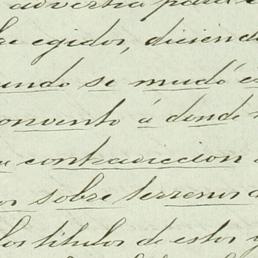 advertia para
egidos, diciendo
se mudó
convento á donde
contradiccion
sobre terrenos
los titulos de estos y